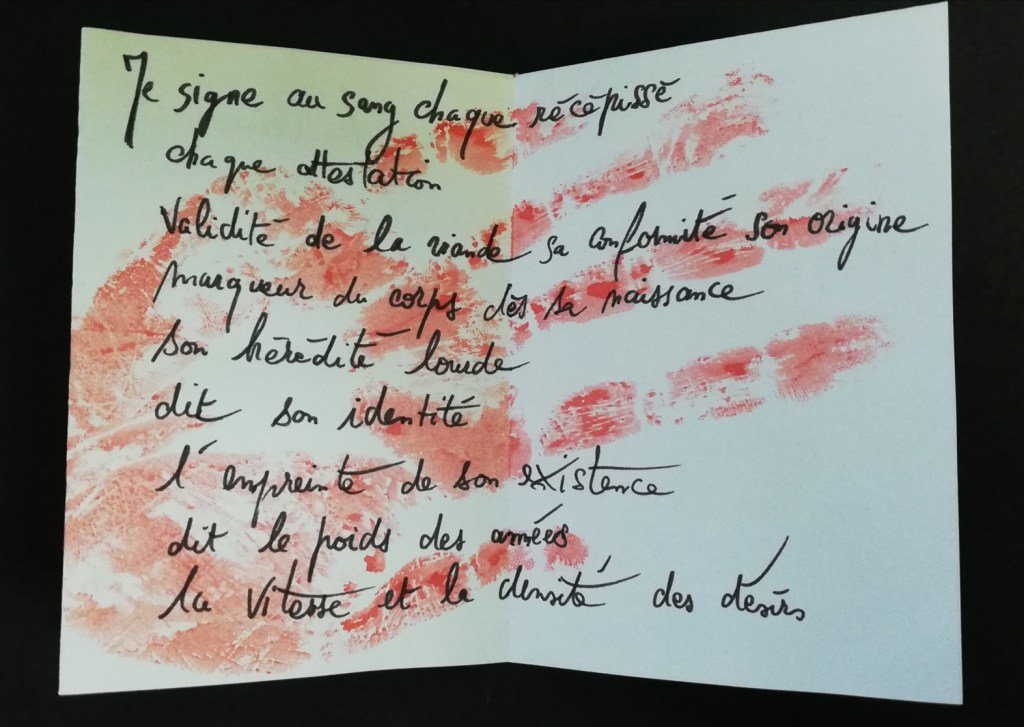 Je signe au sang chaque récépissé
chaque attestation
Validité de la viande sa conformité son origine
marqueur du corps dès sa naissance
son hérédité lourde
dit son identité
l'empreinte de son existence
dit le poids des années
la vitesse et la densité des désirs